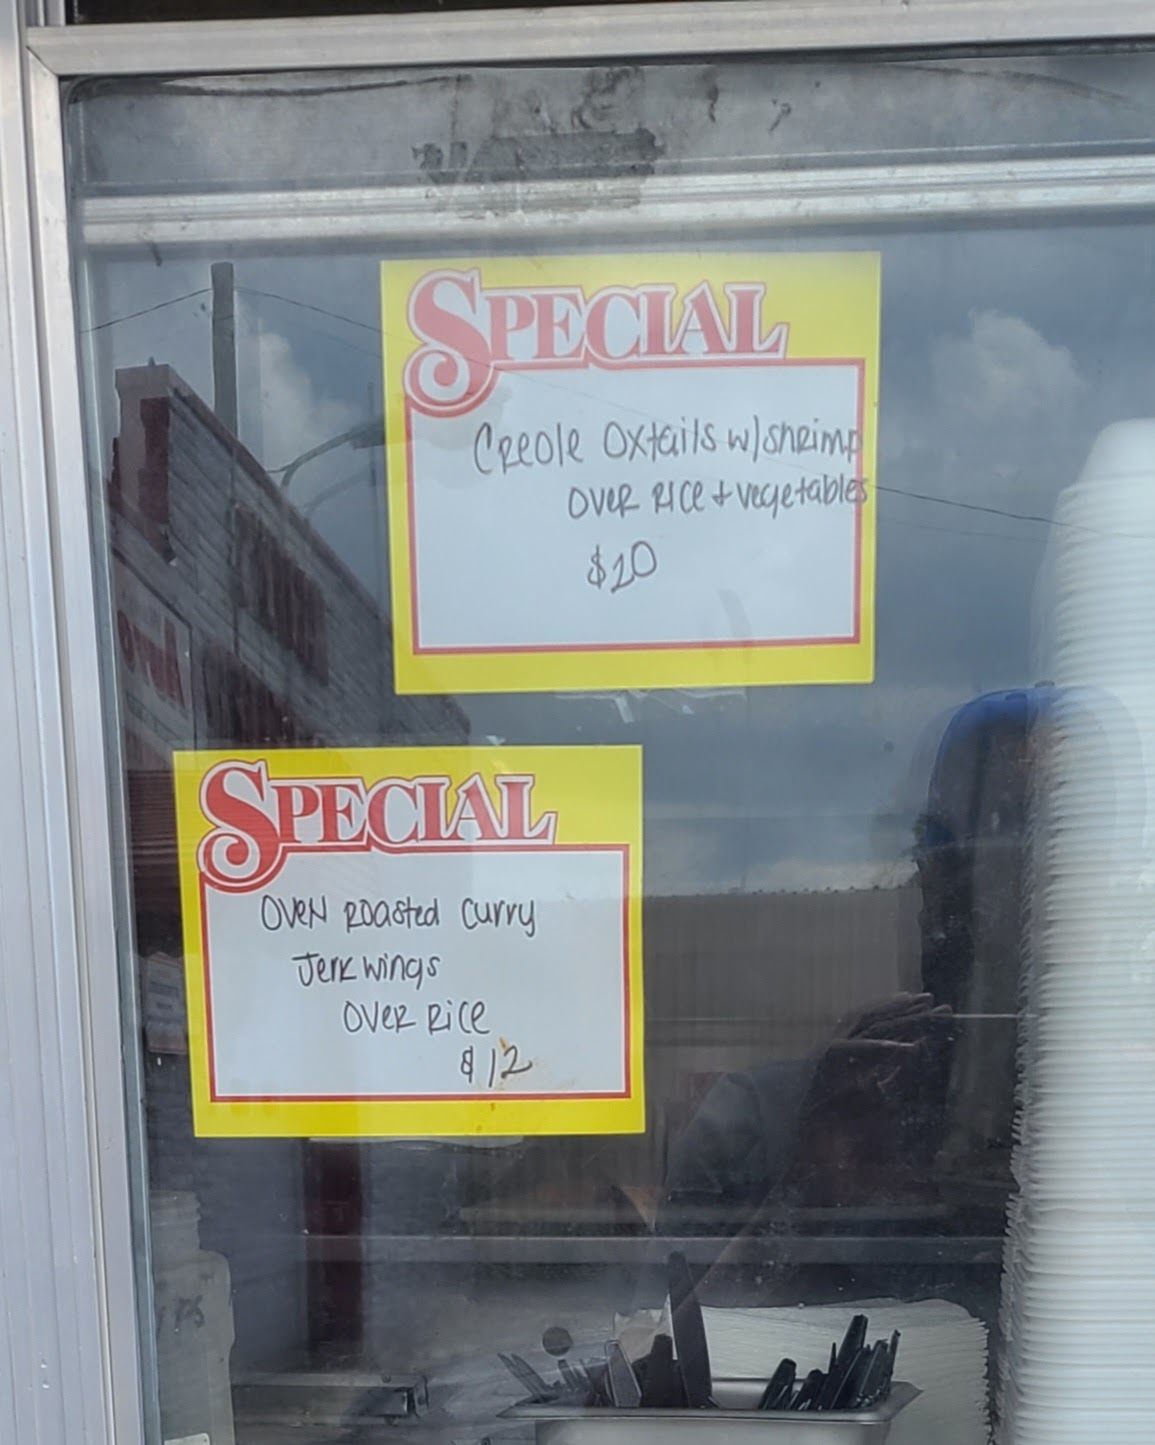 SPECIAL
Creole Oxtails w/shrimp
over rice + vegetables
$20
SPECIAL
Oven Roasted Curry
Jerk wings
over rice
$12